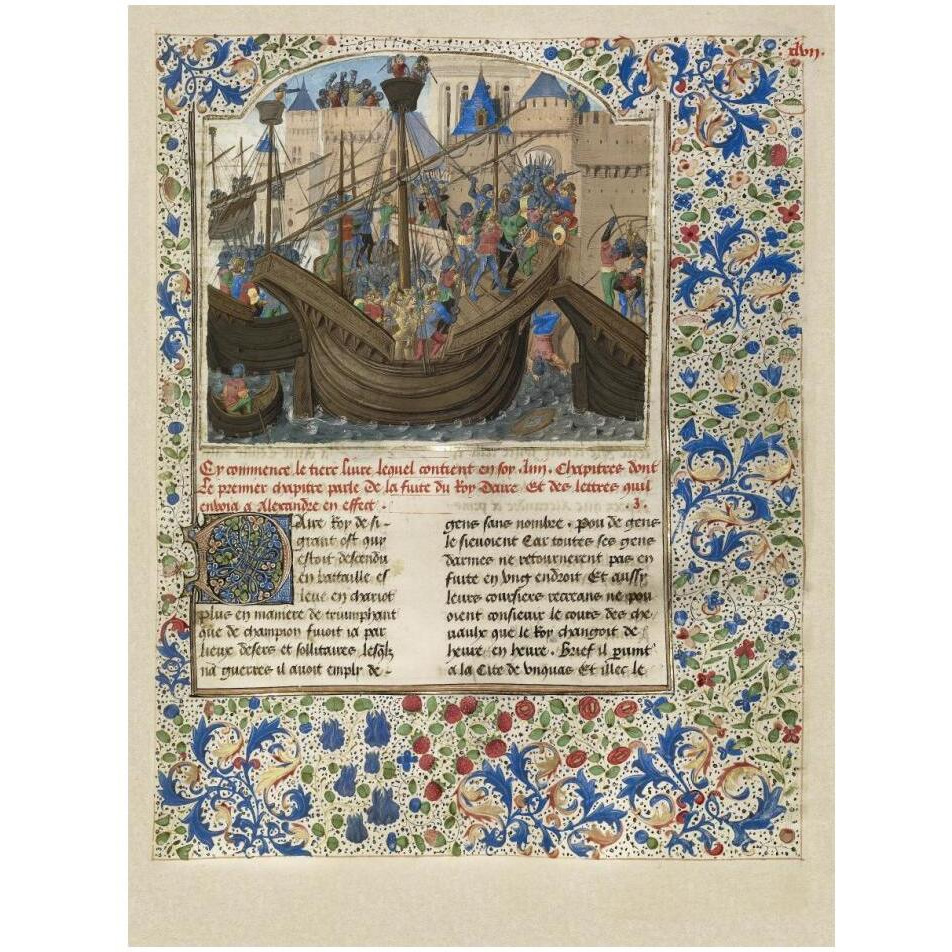 xlvii.
Cy commence le tiers livre lequel contient en soy .xiiii. Chapitres dont
Le premier chapitre parle de la fuite du Roy Daire Et des lettres quil
envoia a Alexandre en effect . 3 .
Daire Roy de si
grant ost qui
estoit descendu
en battaille es
leue en chariot
plus en maniere de triumphant
que de champion fuioit ia par
lieux desers et sollitaires lesqlz
na guerres il auoit emply de
gens sans nombre . pou de gens
le sieuoient Car toutes ses gens
darmes ne retournerent pas en
fuite en vng endroit . Et aussy
leurs coursiers recreans ne pou
oient consieuir le cours des che
uaulx que le Roy changoit de
heure en heure . Brief il vint
a la Cite de vnquas Et illec le